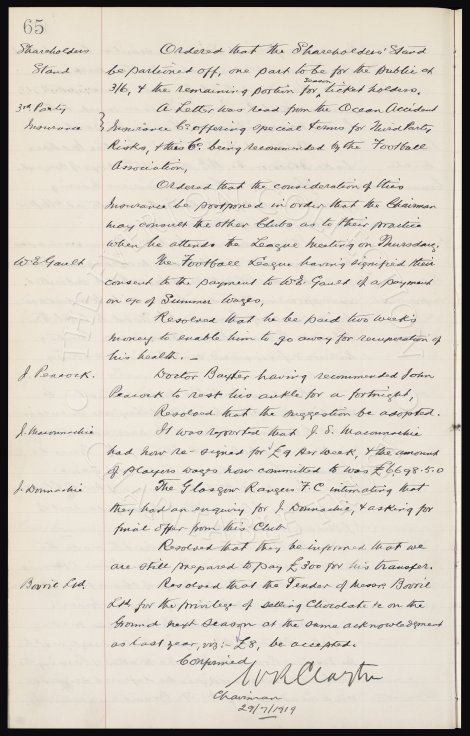 65
Shareholders Ordered that the Shareholders' Stand
Stand be partioned off, one part to be for the public at
3/6, & the remaining portion for season ticket holders.
3rd Party A Letter was read from the Ocean Accident
Insurance } Insurance Co. offering special terms for Third Party
Risks, & this Co. being recommended by the Football
Association,
Ordered that the consideration of this
Insurance be postponed in order that the Chairman
may consult the other Clubs as to their practice
when he attends the League Meeting on Thursday.
W E Gault The Football League having signified their
consent to the payment to W E Gault of a payment
on a/c of Summer Wages,
Resolved that he be paid two week's
money to enable him to go away for recuperation of
his health. -
J. Peacock. Doctor Baxter having recommended John
Peacock to rest his ankle for a fortnight,
Resolved that the suggestion be adopted.
J. Maconnachie It was reported that J. S. Maconnachie
had now re-signed for £9 per week, & the amount
of players wages now committed to was £6698.5.0
J. Donnachie The Glasgow Rangers F.C intimating that
they had an enquiry for J. Donnachie, & asking for
final offer from this Club
Resolved that they be informed that we
are still prepared to pay £300 for his transfer.
Bovril Ltd Resolved that the Tender of Messrs Bovril
Ltd, for the privilege of selling Chocolate &c on the
Ground next season at the same acknowledgment
as last year, viz:- £8, be accepted.
Confirmed
W R Clayton
Chairman
29/7/1919